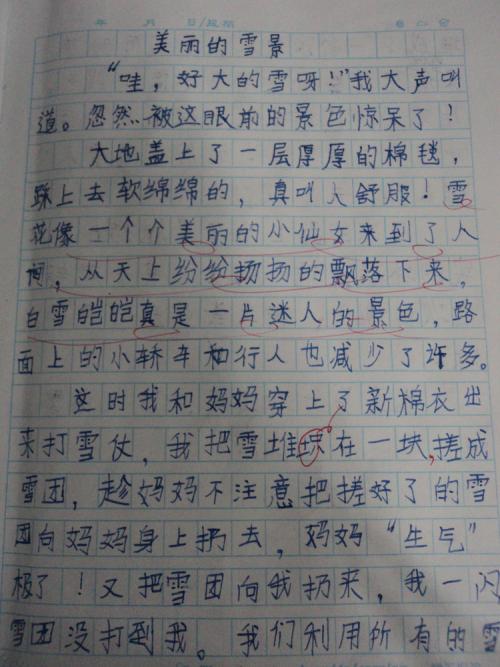 年 月 日/星期
美丽的雪景
“哇，好大的雪呀！”我大声叫
道。忽然被这眼前的景色惊呆了！
大地盖上了一层厚厚的棉毯，
踩上去软绵绵的，真叫人舒服！雪
花像一个个美丽的小仙女来到了人
间，从天上纷纷扬扬的飘落下来，
白雪皑皑真是一片迷人的景色，路
面上的小轿车和行人也减少了许多。
这时我和妈妈穿上了新棉衣出
来打雪仗，我把雪堆在一块，搓成
雪团，趁妈妈不注意把搓好了的雪
团向妈妈身上扔去，妈妈“生气”
极了！又把雪团向我扔来，我一闪
雪团没打到我。我们利用所有的雪